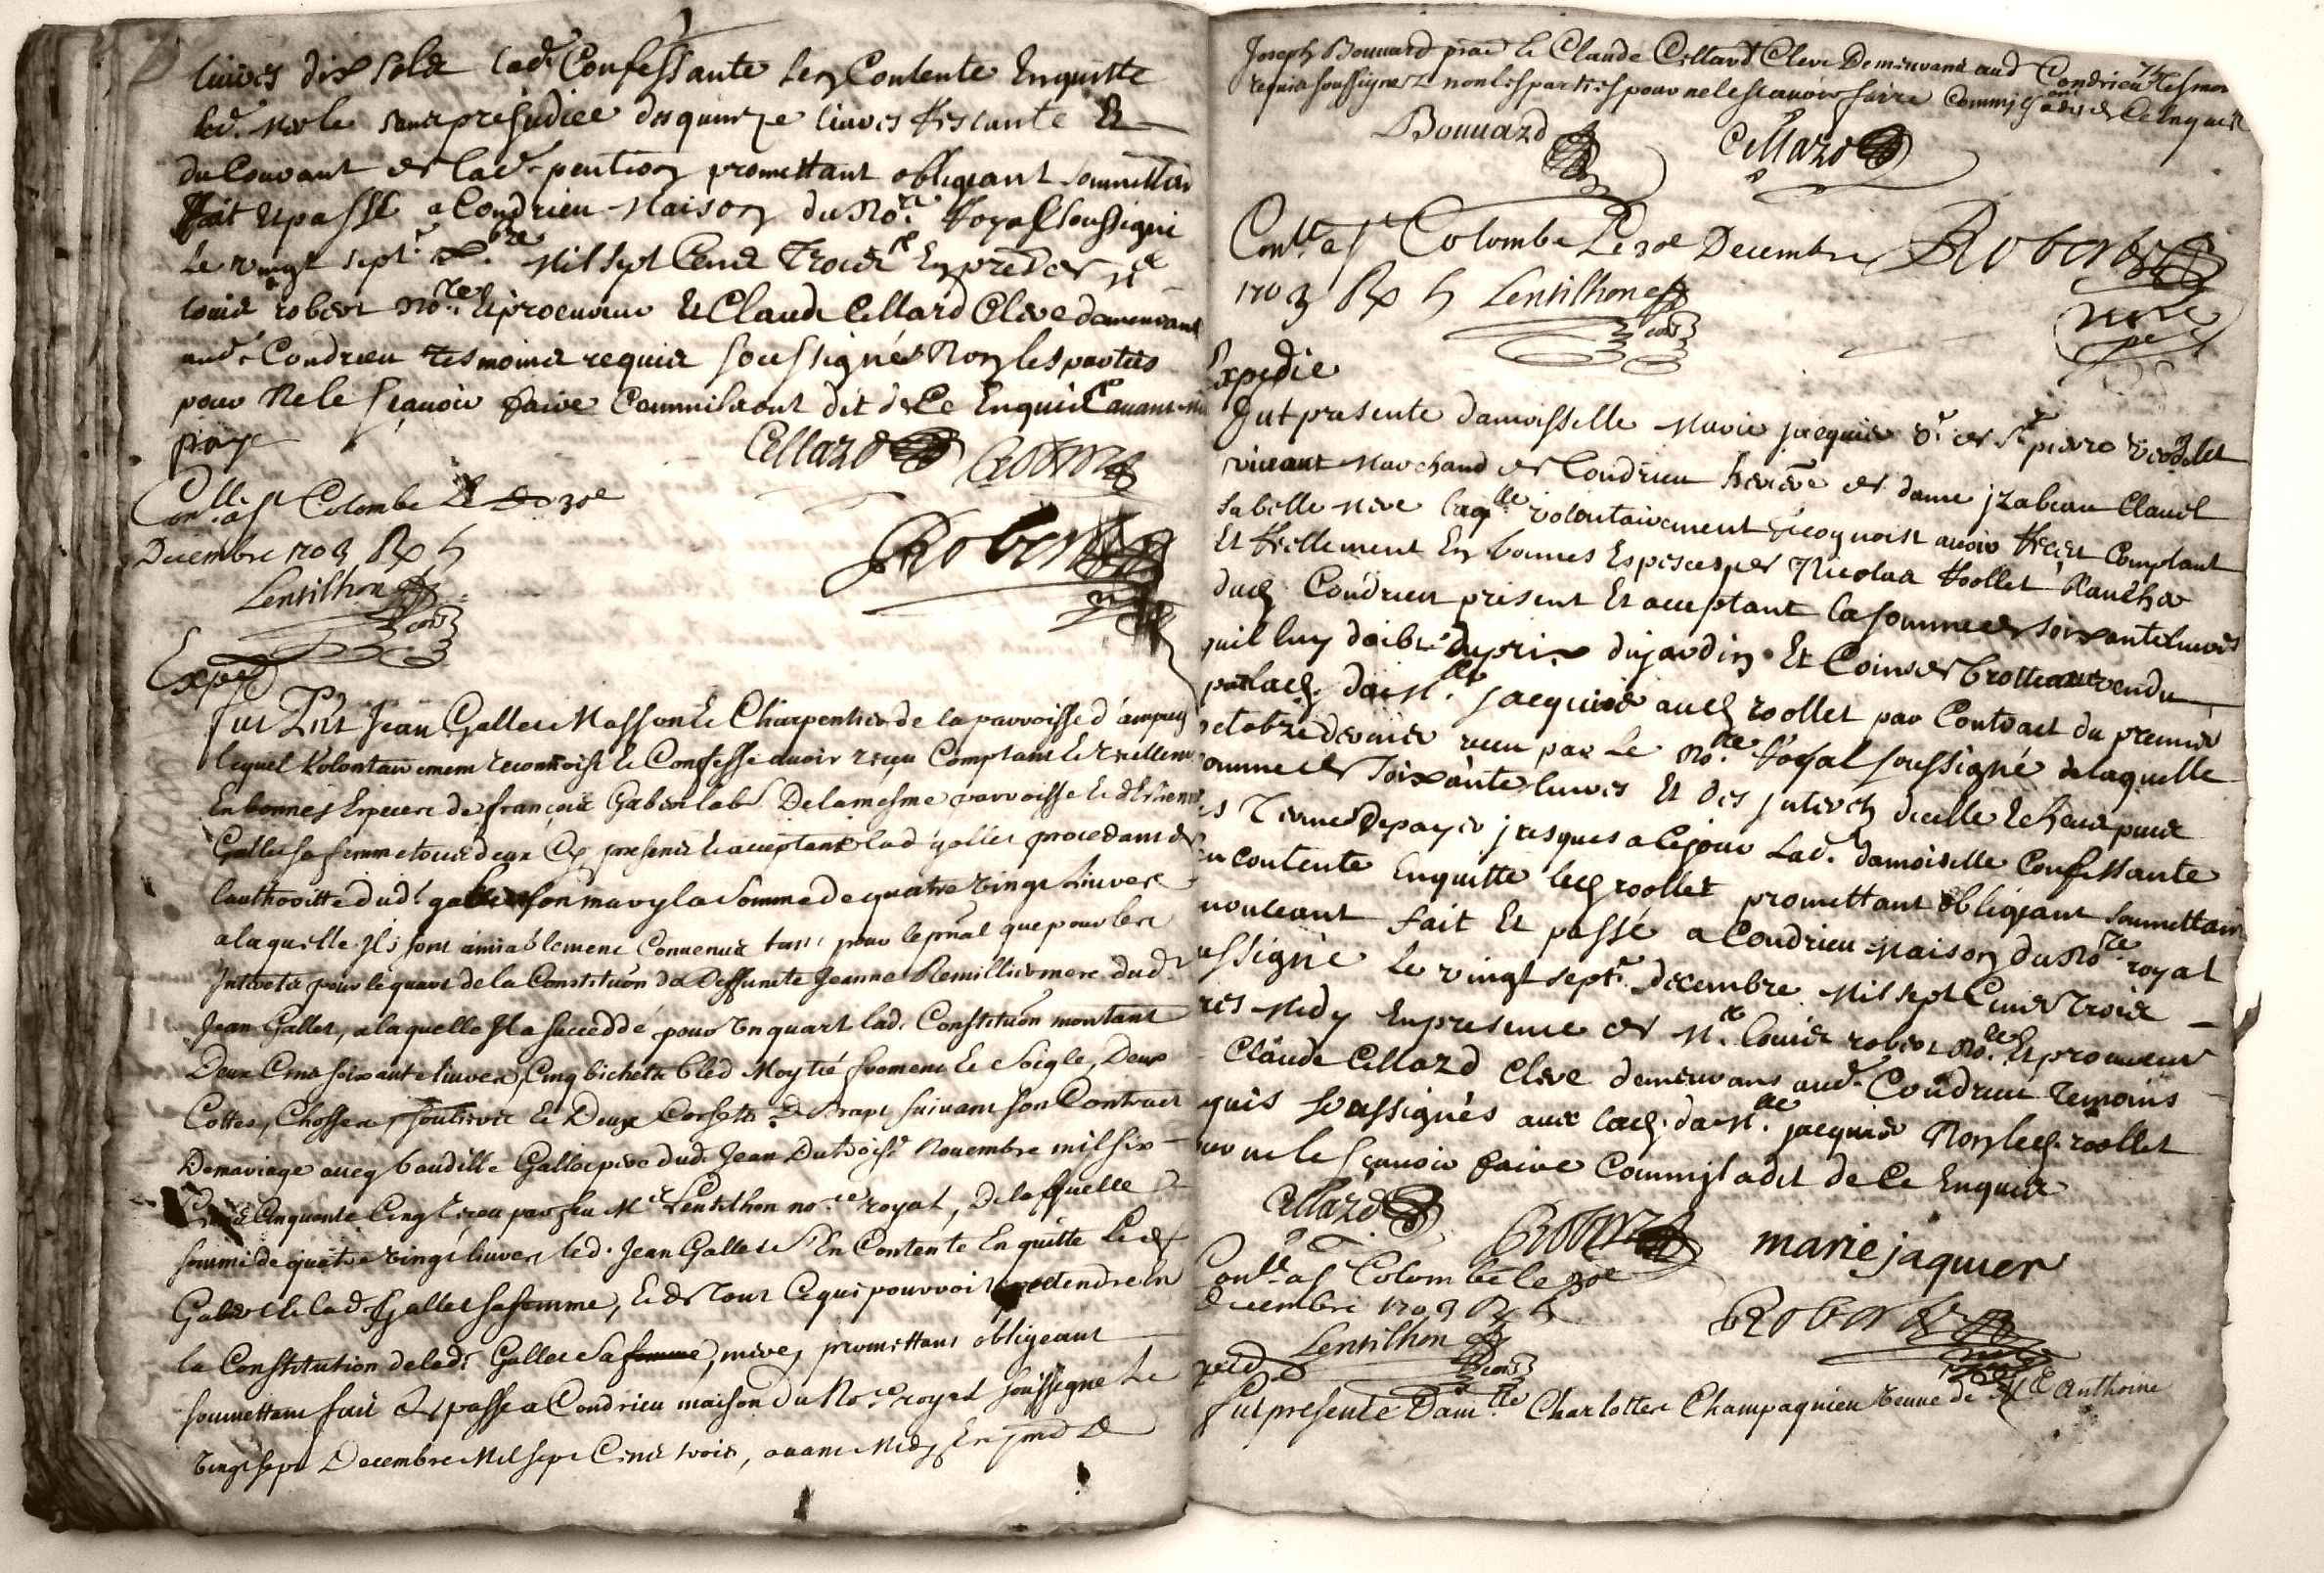 livres dix sols lad. Confessante Sen Contente Enquitte
led. Merle sans prejudice des quinze livres Restante Et
du Courant de lad. pention promettant obligeant soumettan
fait Et passé a Condrieu Maison du No.re Royal soussigné
Le vingt sept.e x.bre Mil sept Cens Trois En pres.ce de M.e
louis robert No.re Et procureur Et Claude Cellard Clerc demeurant
aud. Condrieu tesmoins requis soussignés Non les parties
pour Ne le sçavoir faire Comm'ils ont dit de Ce Enquis avant
Cellard Robert
Con.llé a S.t Colombe Le 30e
Decembre 1703 Rx 5
Lentilhon
Robert
Exped
Fut P.nt Jean Gallet Masson Et Charpentier de la parroisse d'ampuy
lequel Volontairement reconnoist Et Confesse avoir reçu Comptant Et reellem
En bonnes Especes de françois Gabert lab.r De la mesme parroisse Et d'Estienne
Gallet sa femme tous deux Cy presents Et acceptant lad. gallet procedant de
lauthoritte dud. gabert son mary la Somme de quatre vingt Livres
a laquelle Ils sont amiablement Convenus tant pour le p.nal que pour les
Interets pour le quart de la Constitution de Deffunte Jeanne Remillier mere dud.
Jean Gallet, a laquelle Il a succeddé pour Un quart lad. Constitution montant
Deux Cens soixante livres, Cinq bichets bled Moytié froment Et Soigle, Deux
Cottes, Et Deux Corsets De Drap suivant son Contract
De mariage avecq baudille Gallet pere dud. Jean Du trois.e Novembre mil six
Cens Cinquante Cinq receu par feu M.e Lentilhon no.re royal, De laquelle
somme de quatre vingt livres led. Jean Gallet S'En Contente En quitte Led.
Gabert Et lad. Gallet sa femme, Et de Tout Ce qui pourroit pretendre En
la Constitution de lad. Gallet Sa femme, mere, promettant obligeant
soumettant fait Et passé a Condrieu maison du No.re royal soussigné Le
vingt sept Decembre Mil sept Cens trois, avant Midy En p.nce De
Joseph Bonnard prat. Et Claude Cellard Clerc Demeurant aud Condrieu Tesmo
requis soussignez non les parties pour ne le sçavoir faire Comm'ils ont dit de Ce Enquis
Bonnard Cellard
Con.llé a S.t Colombe Le 30e Decembre Robert
1703 Rx 5 Lentilhon
Expedie
Fut presente damoisselle Marie jacquier v.e de S.r pierre
vivant Marchand de Condrieu heretiere de dame jzabeau Clavel
sa belle Mere laq.lle volontairement Recognoist avoir Receu Comptant
Et Reellement En bonnes Especes de Nicolas Roollet
dud. Condrieu present Et acceptant la somme de soixante livres
quil luy doibt du prix du jardin Et Coin de brotteaux vendu
par lad. da.lle jacquier aud. roollet par Contract du premier
octobre dernier receu par Le No.re Royal soussigné de laquelle
somme de Soixante livres Et des jnterets dicelle Echeus
jusques a Ce jour Lad. damoiselle Confessante
Sen contente Enquitte led roollet promettant obligeant soumettant
renonceant fait Et passé a Condrieu Maison du No.re royal
soussigné Le vingt sept.e decembre Mil sept Cens Trois
apres Midy En presence de M.e louis robert No.re Et procureur
Claude Cellard Clerc demeurans aud. Condrieu temoins
requis soussignés avec lad. da.lle jacquier Non led. roollet
pour ne le sçavoir faire Comm'il a dit de Ce Enquis
Cellard Robert marie jaquier
Con.llé a S.t Colombe le 30e
decembre 1703 Rx 5
Lentilhon Robert
Exped
Fut presente Dam.lle Charlotte Champagnieu veuve de M.e Anthoine